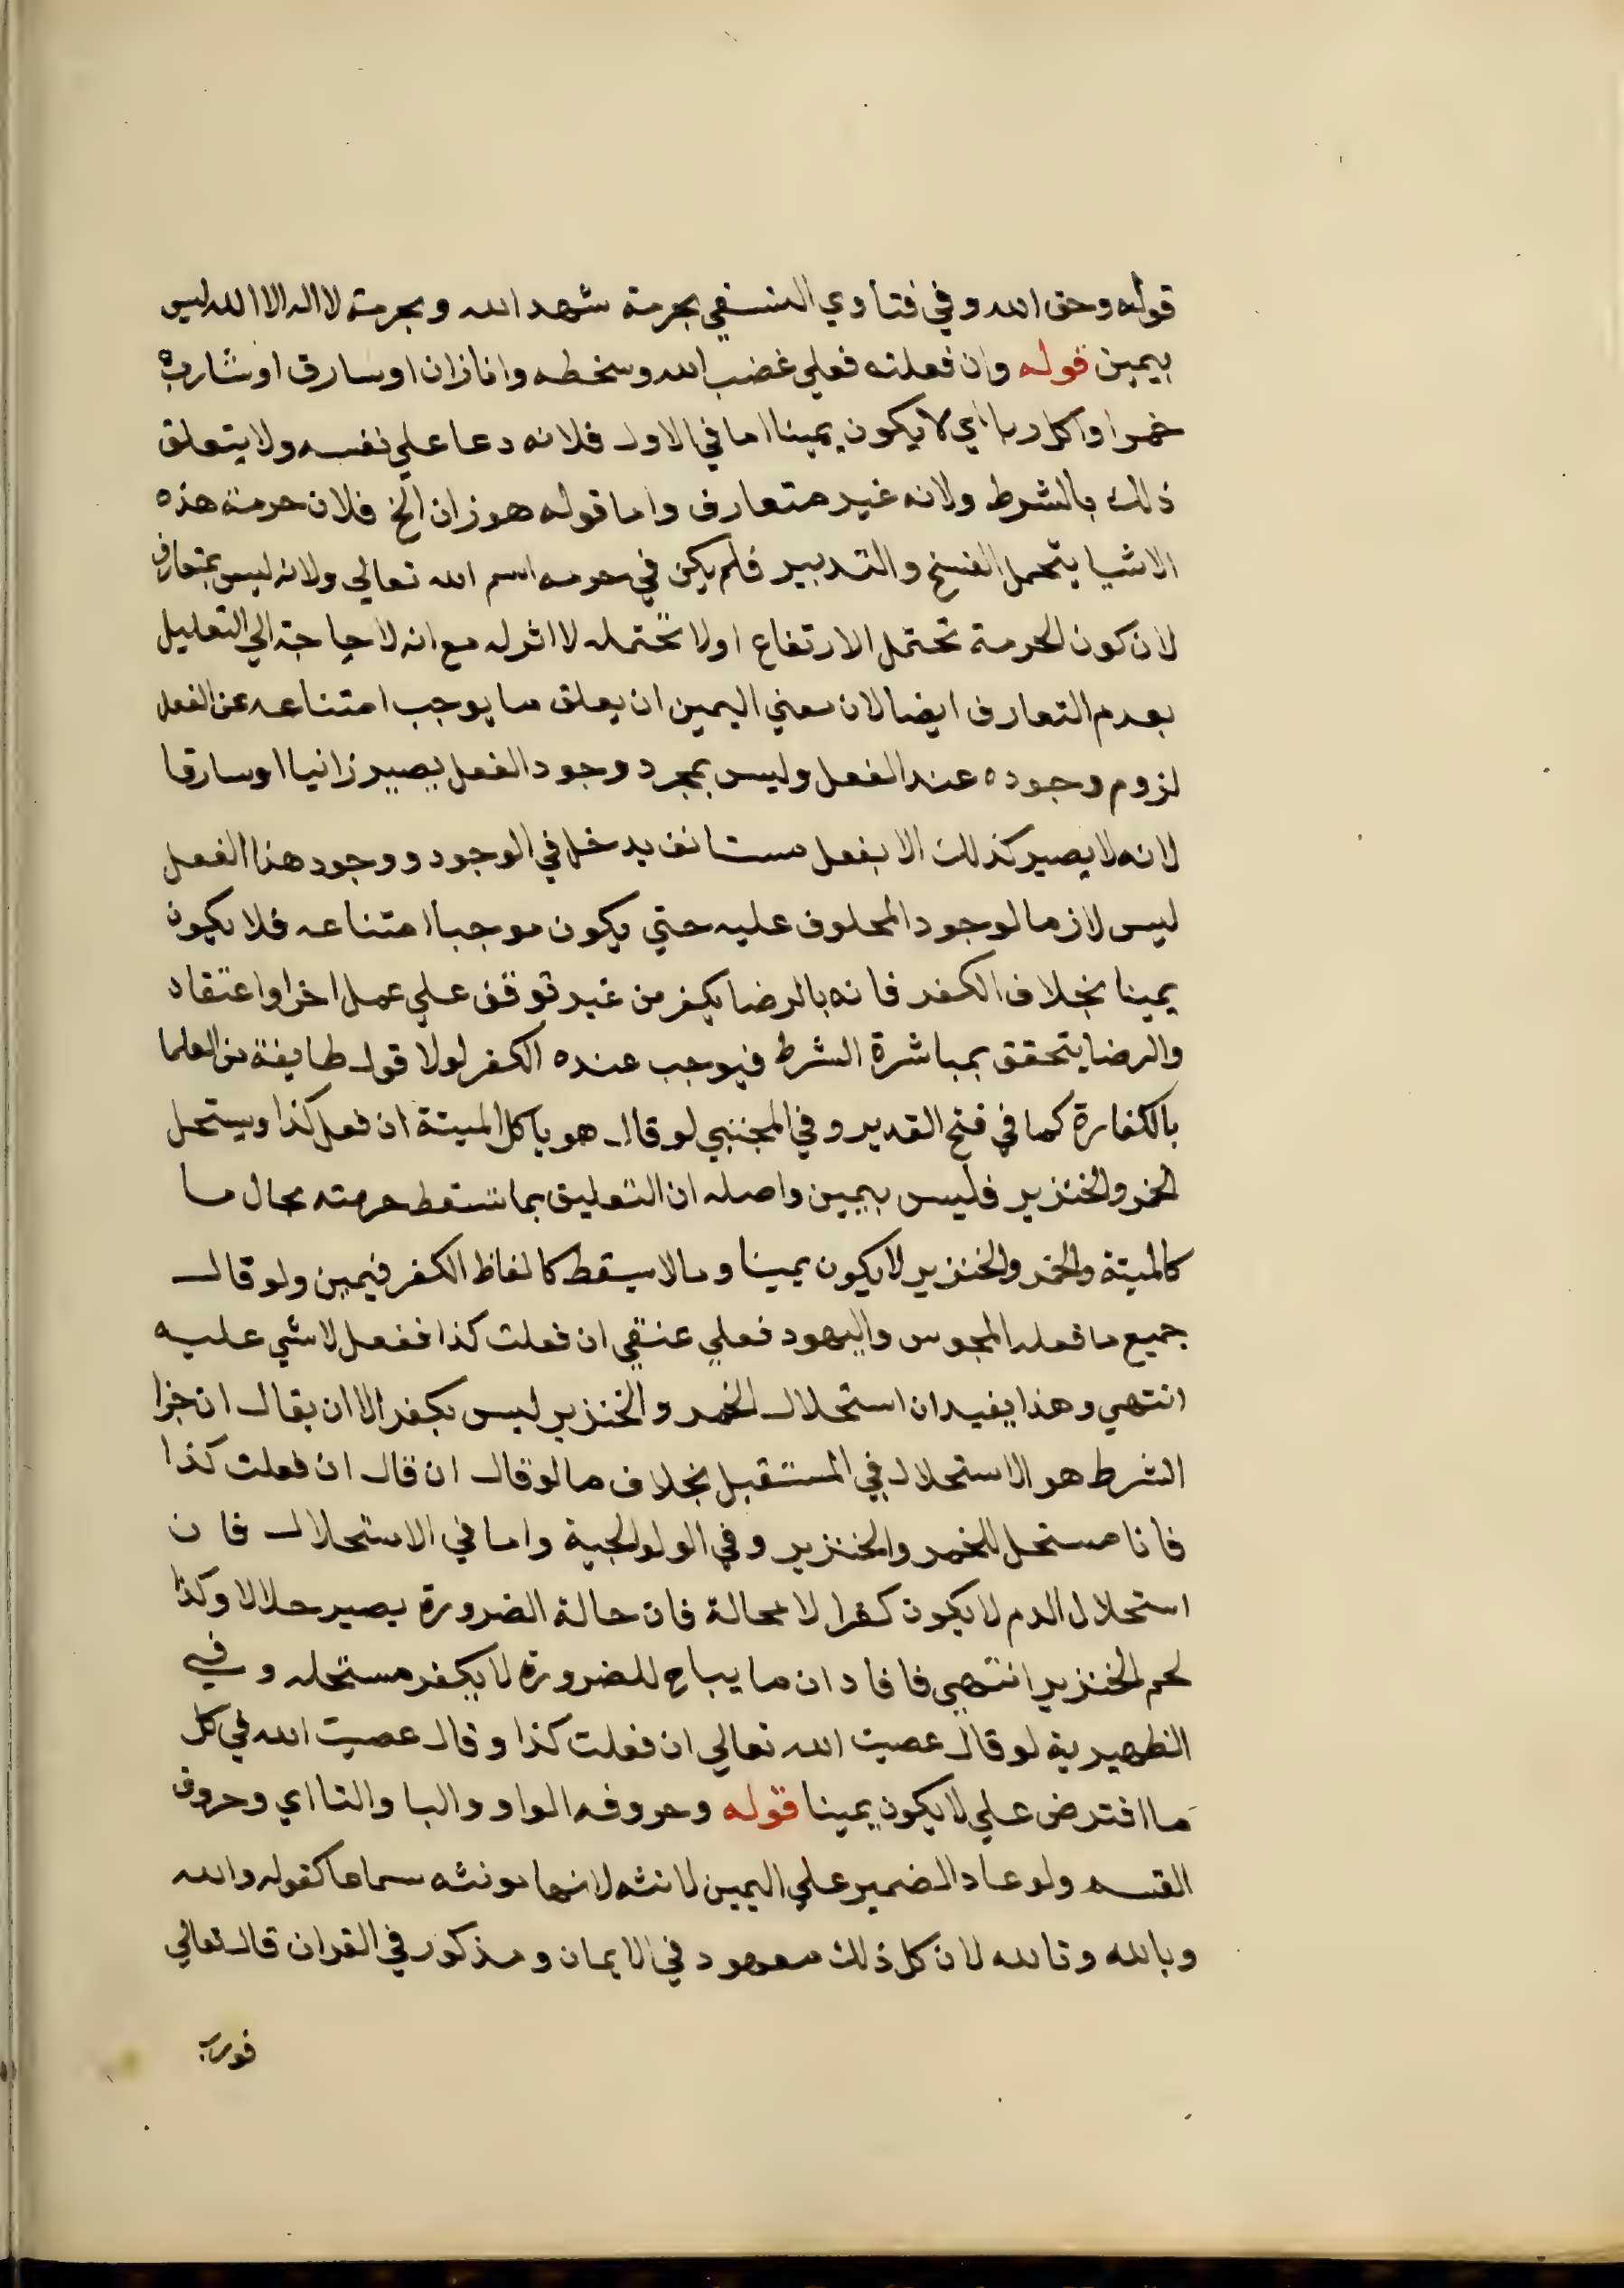 قوله وحق الله وفي فتاوي النسفي بحرمة شهد الله وبحرمة لا اله الا الله ليس
بيمين قوله وان فعلته فعلي غضب الله وسخطه وانا زان او سارق او شارب
خمر او اكل ربا اي لا يكون يمينا اما في الاول فلانه دعا علي نفسه ولا يتعلق
ذلك بالشرط ولانه غير متعارف واما قوله هو زان الخ فلان حرمة هذه
الاشيا يتحمل الفسخ والتدبير فلم يكن في حرمه اسم الله تعالي ولانه ليس بمتعارف
لان كون الحرمة تحتمل الارتفاع اولا تحتمله لا اثر له مع انه لا حاجة الي التعليل
بعدم التعارف ايضا لان معني اليمين ان يعلق ما يوجب امتناعه عن الفعل
لزوم وجوده عند الفعل وليس بمجرد وجود الفعل يصير زانيا او سارقا
لانه لا يصير كذلك الا بفعل مستانف يدخل في الوجود ووجود هذا الفعل
ليس لازما لوجود المحلوف عليه حتي يكون موجبا امتناعه فلا يكون
يمينا بخلاف الكفر فانه بالرضا يكفر من غير توقف علي عمل اخر او اعتقاد
والرضا يتحقق بمباشرة الشرط فيوجب عنده الكفر لولا قول طايفة من العلما
بالكفارة كما في فتح القدير وفي المجتبي لو قال هو ياكل الميتة ان فعل كذا ويستحل
الخمر والخنزير فليس بيمين واصله ان التعليق بما تسقط حرمته بحال ما
كالميتة والخمر والخنزير لا يكون يمينا وما لا يسقط كالفاظ الكفر فيمين ولو قال
جميع ما فعله المجوس واليهود فعلي عنقي ان فعلت كذا ففعل لا شي عليه
انتهي وهذا يفيد ان استحلال الخمر والخنزير ليس بكفر الا ان يقال ان جزا
الشرط هو الاستحلال في المستقبل بخلاف ما لو قال ان قال ان فعلت كذا
فانا مستحل للخمر والخنزير وفي الولوالجية واما في الاستحلال فان
استحلال الدم لا يكون كفرا لا محالة فان حالة الضرورة يصير حلالا وكذا
لحم الخنزير انتهي فافاد ان ما يباح للضرورة لا يكفر مستحله وفي
الظهيرية لو قال عصيت الله تعالي ان فعلت كذا وقال عصيت الله في كل
ما افترض علي لا يكون يمينا قوله وحروفه الواو والبا والتا اي وحروف
القسم ولو عاد الضمير علي اليمين لانثه لانها مونثه سماعا كقوله والله
وبالله وتالله لان كل ذلك معهود في الايمان ومذكور في القران قال تعالي
فورب